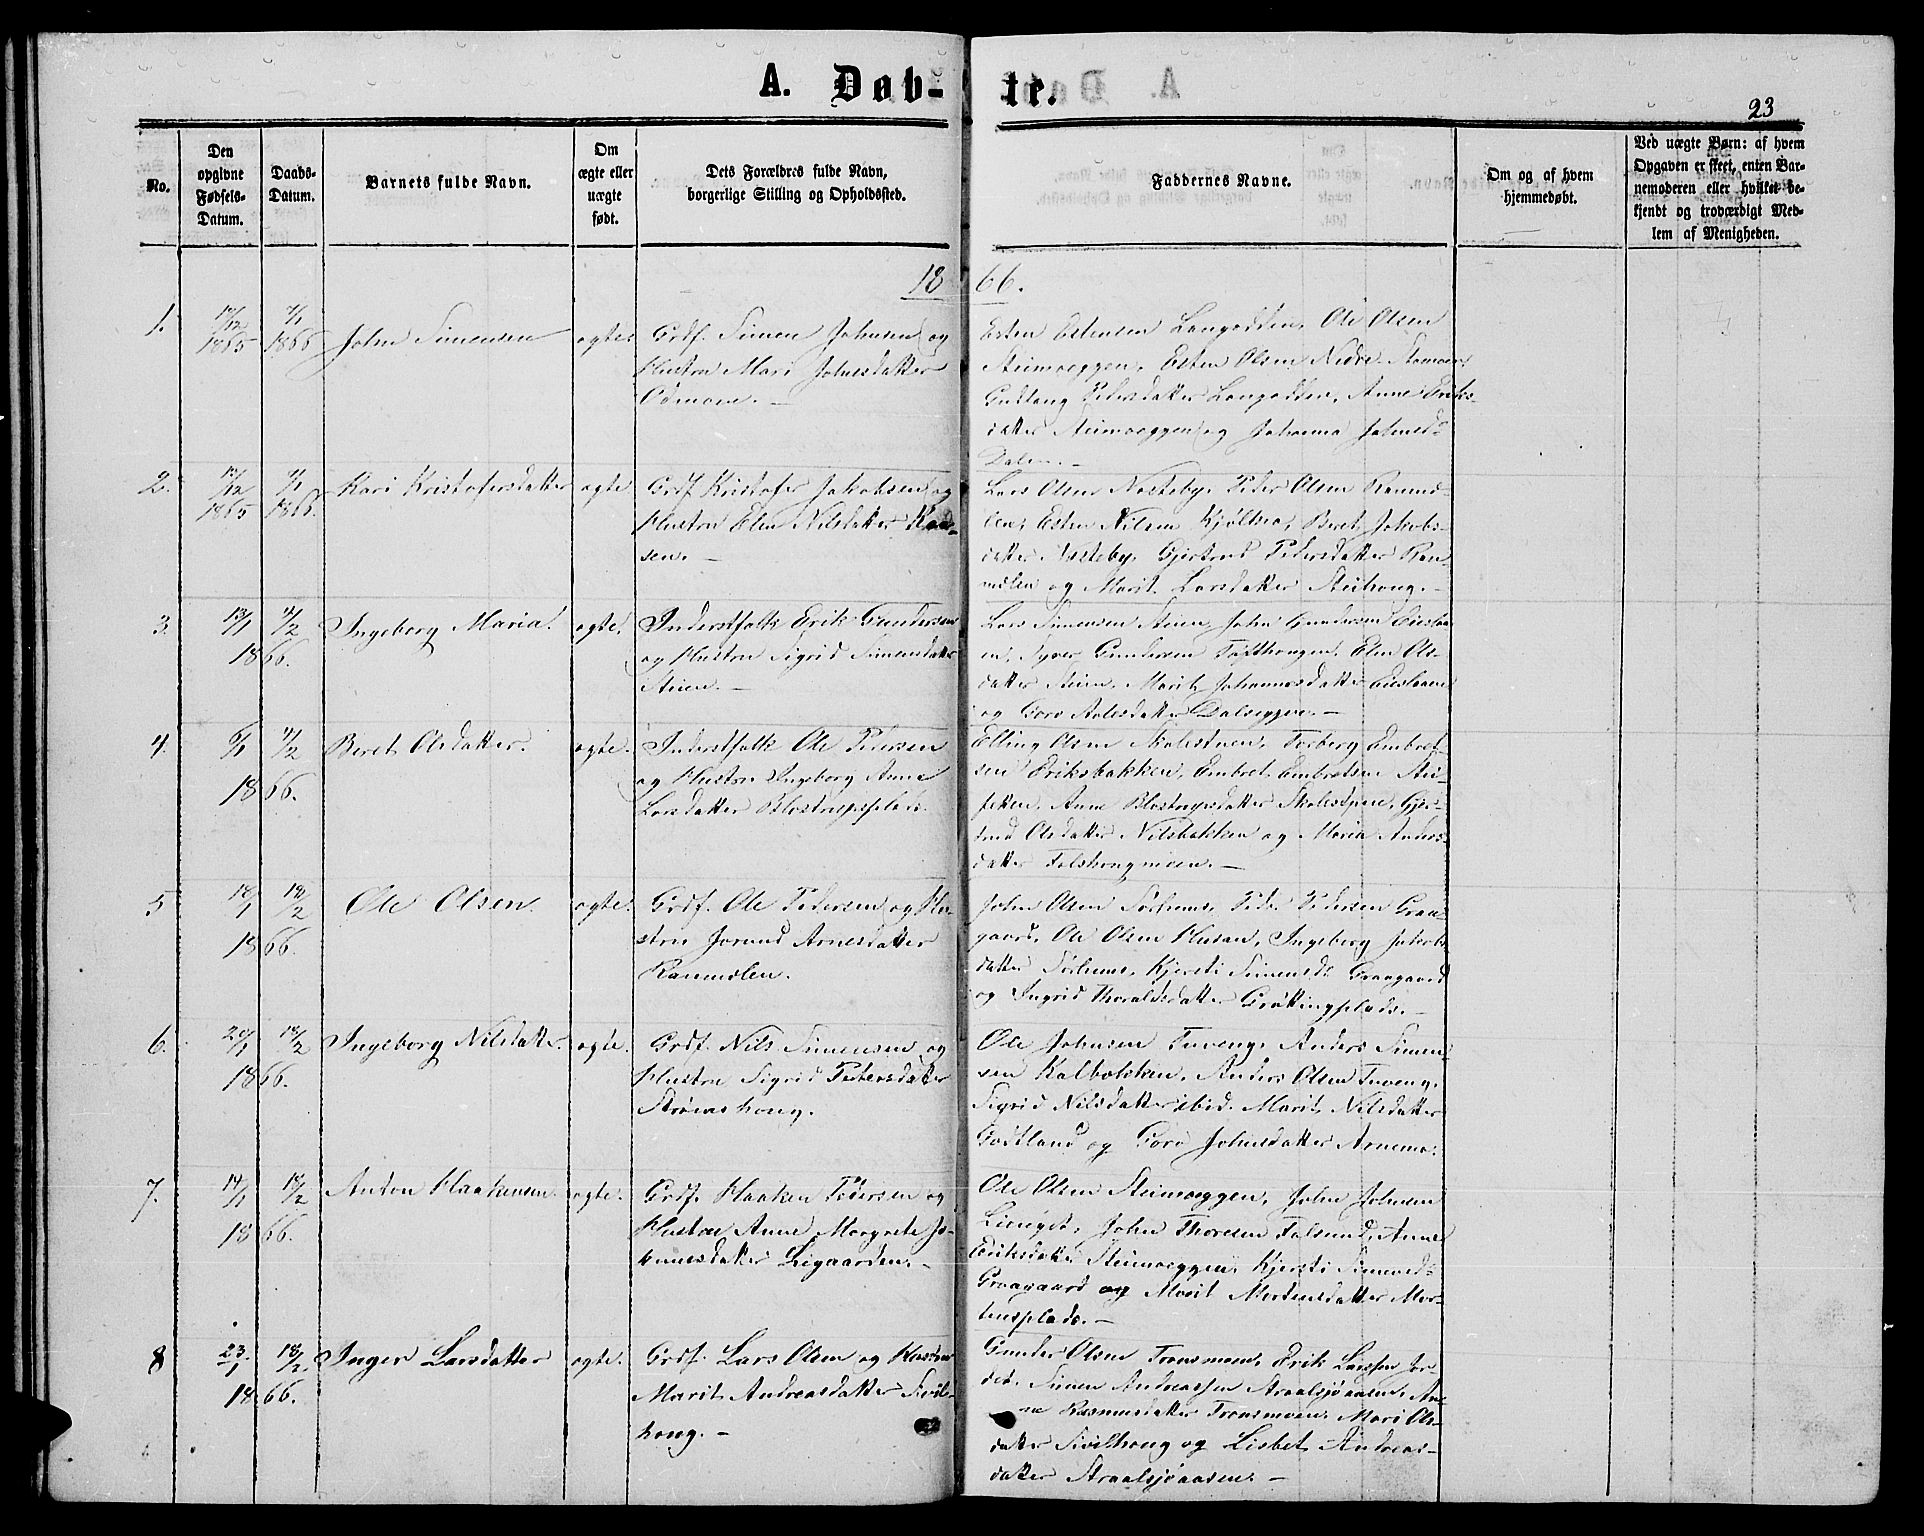 A. Døb-
te.
23
No.
Den
opgivne
Fødsels-
Datum.
Daabs-
Datum.
Barnets fulde Navn.
Om
ægte eller
uægte
født.
Dets Forældres fulde Navn,
borgerlige Stilling og Opholdssted.
Faddernes Navne.
Om og af hvem
hjemmedøbt.
Ved uægte Børn: af hvem
Opgaven er skeet, enten Bar-
nemoderen eller hvilket be-
kjendt og troværdigt Med-
lem af Menigheden.
1866.
1.
1865
1866
John Simensen
ægte
Grdf. Simen Johnsen og
Hustru Mari Johnsdatter
Esten Estensen Langodden, Ole Olsen
Steimoeggen, Esten Olsen Nedre
Gudlaug Pedersdatter Langodden, Anne Eriks-
datter Steimoeggen og Johanna Johnsd.
Dalen.-
2.
1865
1866.
Kari Kristofersdatter
ægte
Grdf. Kristofer Jakobsen og
Hustru Elen Nilsdatter
sen.-
Lars Olsen Nesteby, Peder Olsen Ranmø-
len, Esten Nilsen Kjøltsen, Beret Jakobs-
datter Nesteby, Gjertrud Pedersdatter Ran-
mølen og Marit Larsdatter Steihoug.-
3.
13/1
1866.
Ingeborg Maria.
ægte.
Inderstfolk Erik Gundersen
og Hustru Sigrid Simensdatter
Steien.-
Lars Simensen Steien, John Gundersen
Syver Gundersen Tofthougen, Elen Ols-
datter Steien, Marit Johannesdatter
og Goro Aslesdatter Dalseggen.-
4.
6/1
1866.
Beret Olsdatter.
ægte.
Inderstfolk Ole Pedersen
og Hustru Ingeborg Anna
Larsdatter
Elling Olsen Skolestuen, Torberg Embret-
sen Eriksbakken, Embret Embretsen
Anne
trud Olsdatter Nilsbakken og Maria Anders-
datter
5
18/1
18/2
1866.
Ole Olsen.
ægte.
Grdf. Ole Pedersen og Hu-
stru Jorund Arnesdatter
Ranmølen.
John Olsen Sørhuus, Peder Pedersen Graa-
gaard, Ole Olsen Husan, Ingeborg Jakobs-
datter Sørhuus, Kjersti Simensd. Graagaard
og Ingrid Thoralsdatter Grøttingplads.-
6.
20/1
18/2
1866.
Ingeborg Nilsdatter.
ægte.
Grdf. Nils Simensen og
Hustru Sigrid Pedersdatter
Strømshoug.
Ole Johnsen Tuveng, Anders Simen-
sen Kalbakken, Anders Olsen Tuveng,
Sigrid Nilsdatter ibid. Marit Nilsdatter
Godtland og Goro Johnsdatter Arnemo.
7.
14/1
18/2
1866.
Anton Haakensen.
ægte.
Grdf. Haaken Pedersen og
Hustru Anne Margrete Jo-
hannesdatter Ligaarden.-
Ole Olsen Steimoeggen, John Johnsen
John Thoresen
Eriksdatter Steimoeggen, Kjersti Simensd.
Graagaard og Marit Mortensdatter Mor-
tensplads.-
8
23/1
18/2
1866.
Inger Larsdatter
ægte.
Grdf. Lars Olsen og Hustru
Marit Andreasdatter Sivil-
houg.-
Gunder Olsen Tronsmoen, Erik Larssen Jor-
det, Simen Andreassen Straalsjøaasen, An-
ne Rasmusdatter Tronsmoen, Mari Ols-
datter Sivilhoug og Lisbet Andreas-
datter Straalsjøaasen.-